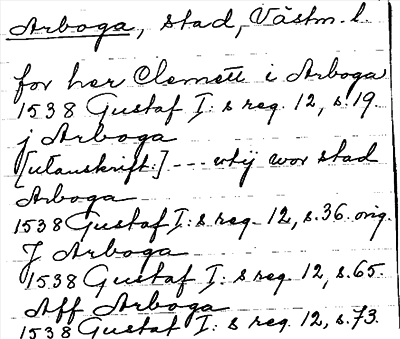 Arboga, stad, Västm. l.
for her Clemett i Arboga
1538 Gustaf I: s reg. 12, s. 19.
j Arboga
[utanskrift:] --- vtij wor stad
Arboga
1538 Gustaf I: s reg. 12, s. 36. orig.
J Arboga
1538 Gustaf I: s reg. 12, s. 65.
Aff Arboga
1538 Gustaf I: s reg. 12, s. 73.